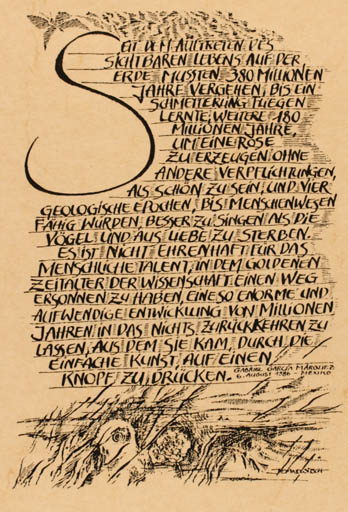 SEIT DEM AUFTRETEN DES
SICHTBAREN LEBENS AUF DER
ERDE MUSSTEN 380 MILLIONEN
JAHRE VERGEHEN, BIS EIN
SCHMETTERLING FLIEGEN
LERNTE, WEITERE 180
MILLIONEN JAHRE,
UM EINE ROSE
ZU ERZEUGEN OHNE
ANDERE VERPFLICHTUNGEN,
ALS SCHÖN ZU SEIN, UND VIER
GEOLOGISCHE EPOCHEN, BIS MENSCHENWESEN
FÄHIG WURDEN, BESSER ZU SINGEN ALS DIE
VÖGEL UND AUS LIEBE ZU STERBEN.
ES IST NICHT EHRENHAFT FÜR DAS
MENSCHLICHE TALENT, IN DEM GOLDENEN
ZEITALTER DER WISSENSCHAFT EINEN WEG
ERSONNEN ZU HABEN, EINE SO ENORME UND
AUFWENDIGE ENTWICKLUNG VON MILLIONEN
JAHREN IN DAS NICHTS ZURÜCKKEHREN ZU
LASSEN, AUS DEM SIE KAM, DURCH DIE
EINFACHE KUNST, AUF EINEN
KNOPF ZU DRÜCKEN.
GABRIEL GARCÍA MÁRQUEZ
6. AUGUST 1986 - MEXIKO